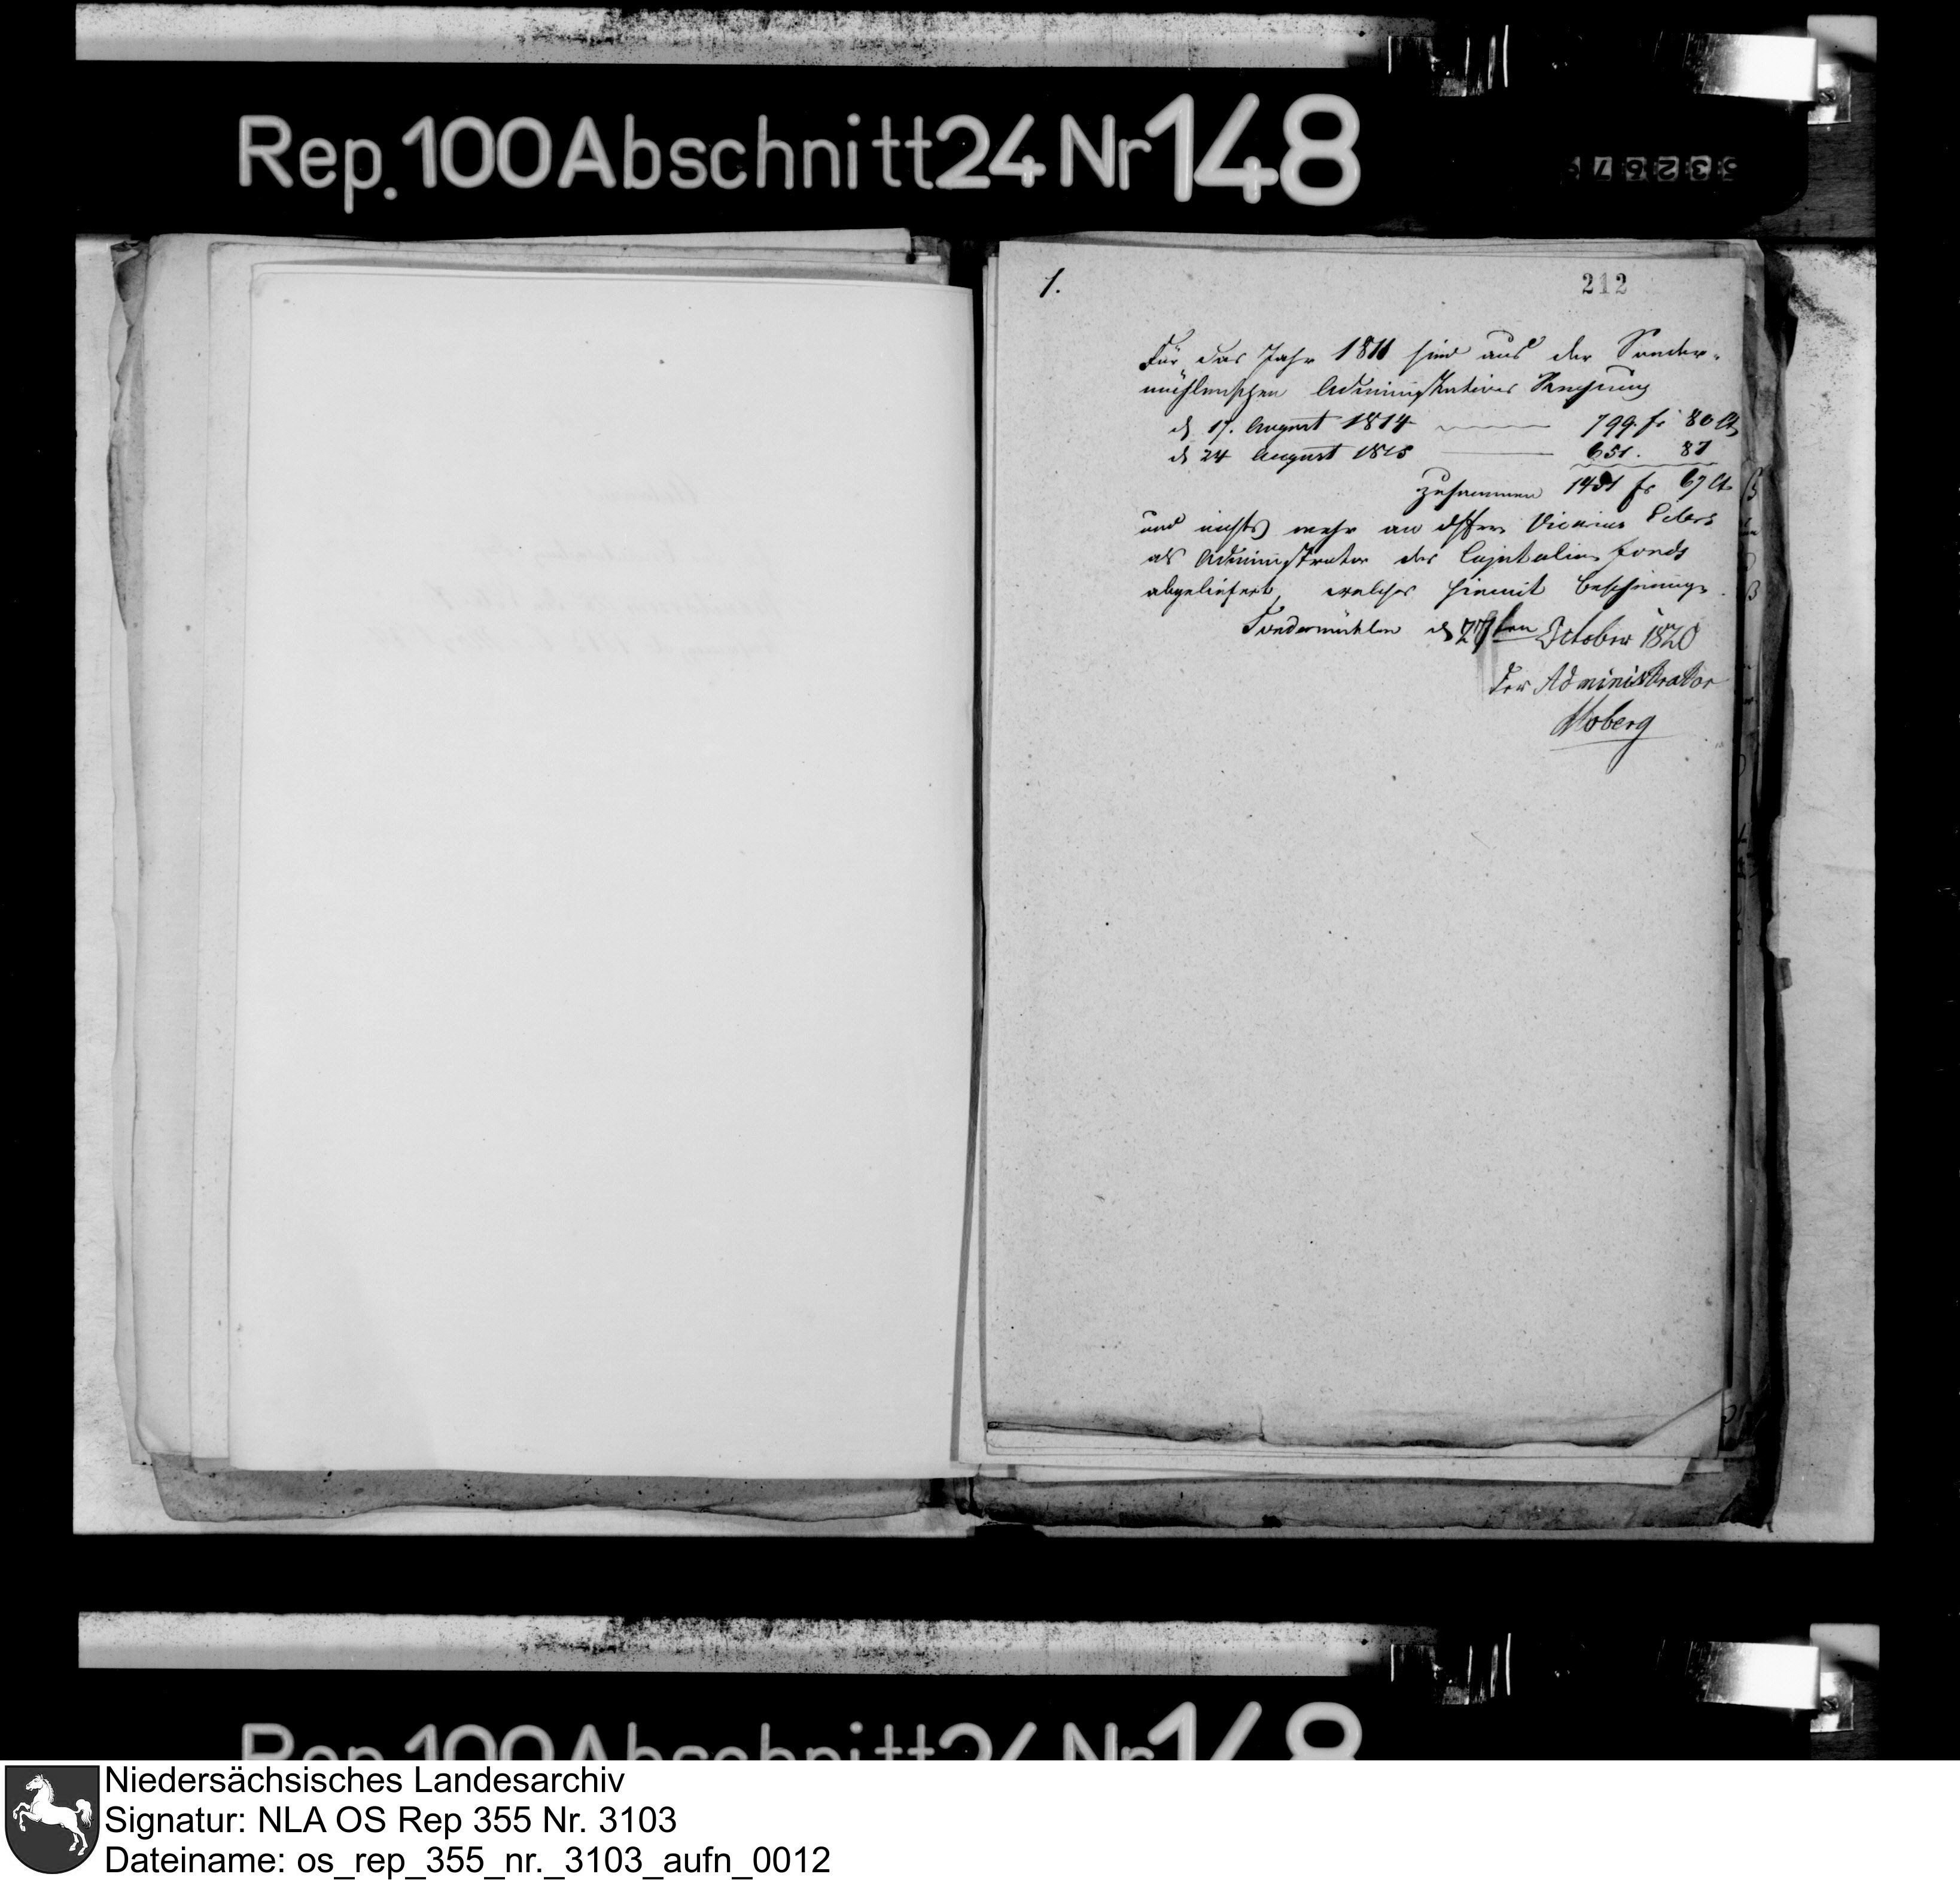 Rep. 100 Abschnitt 24 Nr 148
1.
212
Für das Jahr 1811 sind aus der Sonder-
mühlenschen Administrations Rechnung
d 17. August 1814 799. fr 80 Ct
d 24 August 1815 651. 87
zusammen 1451 fr 67 Ct
und nichts mehr an Vicarius
als Administrator des Capitalien fonds
abgeliefert, welches hiemit bescheinige.
Sondermühlen d 27ten October 1820
Der Administrator
Moberg
Rep. 100 Abschnitt 24 Nr 148
Niedersächsisches Landesarchiv
Signatur: NLA OS Rep 355 Nr. 3103
Dateiname: os_rep_355_nr._3103_aufn_0012